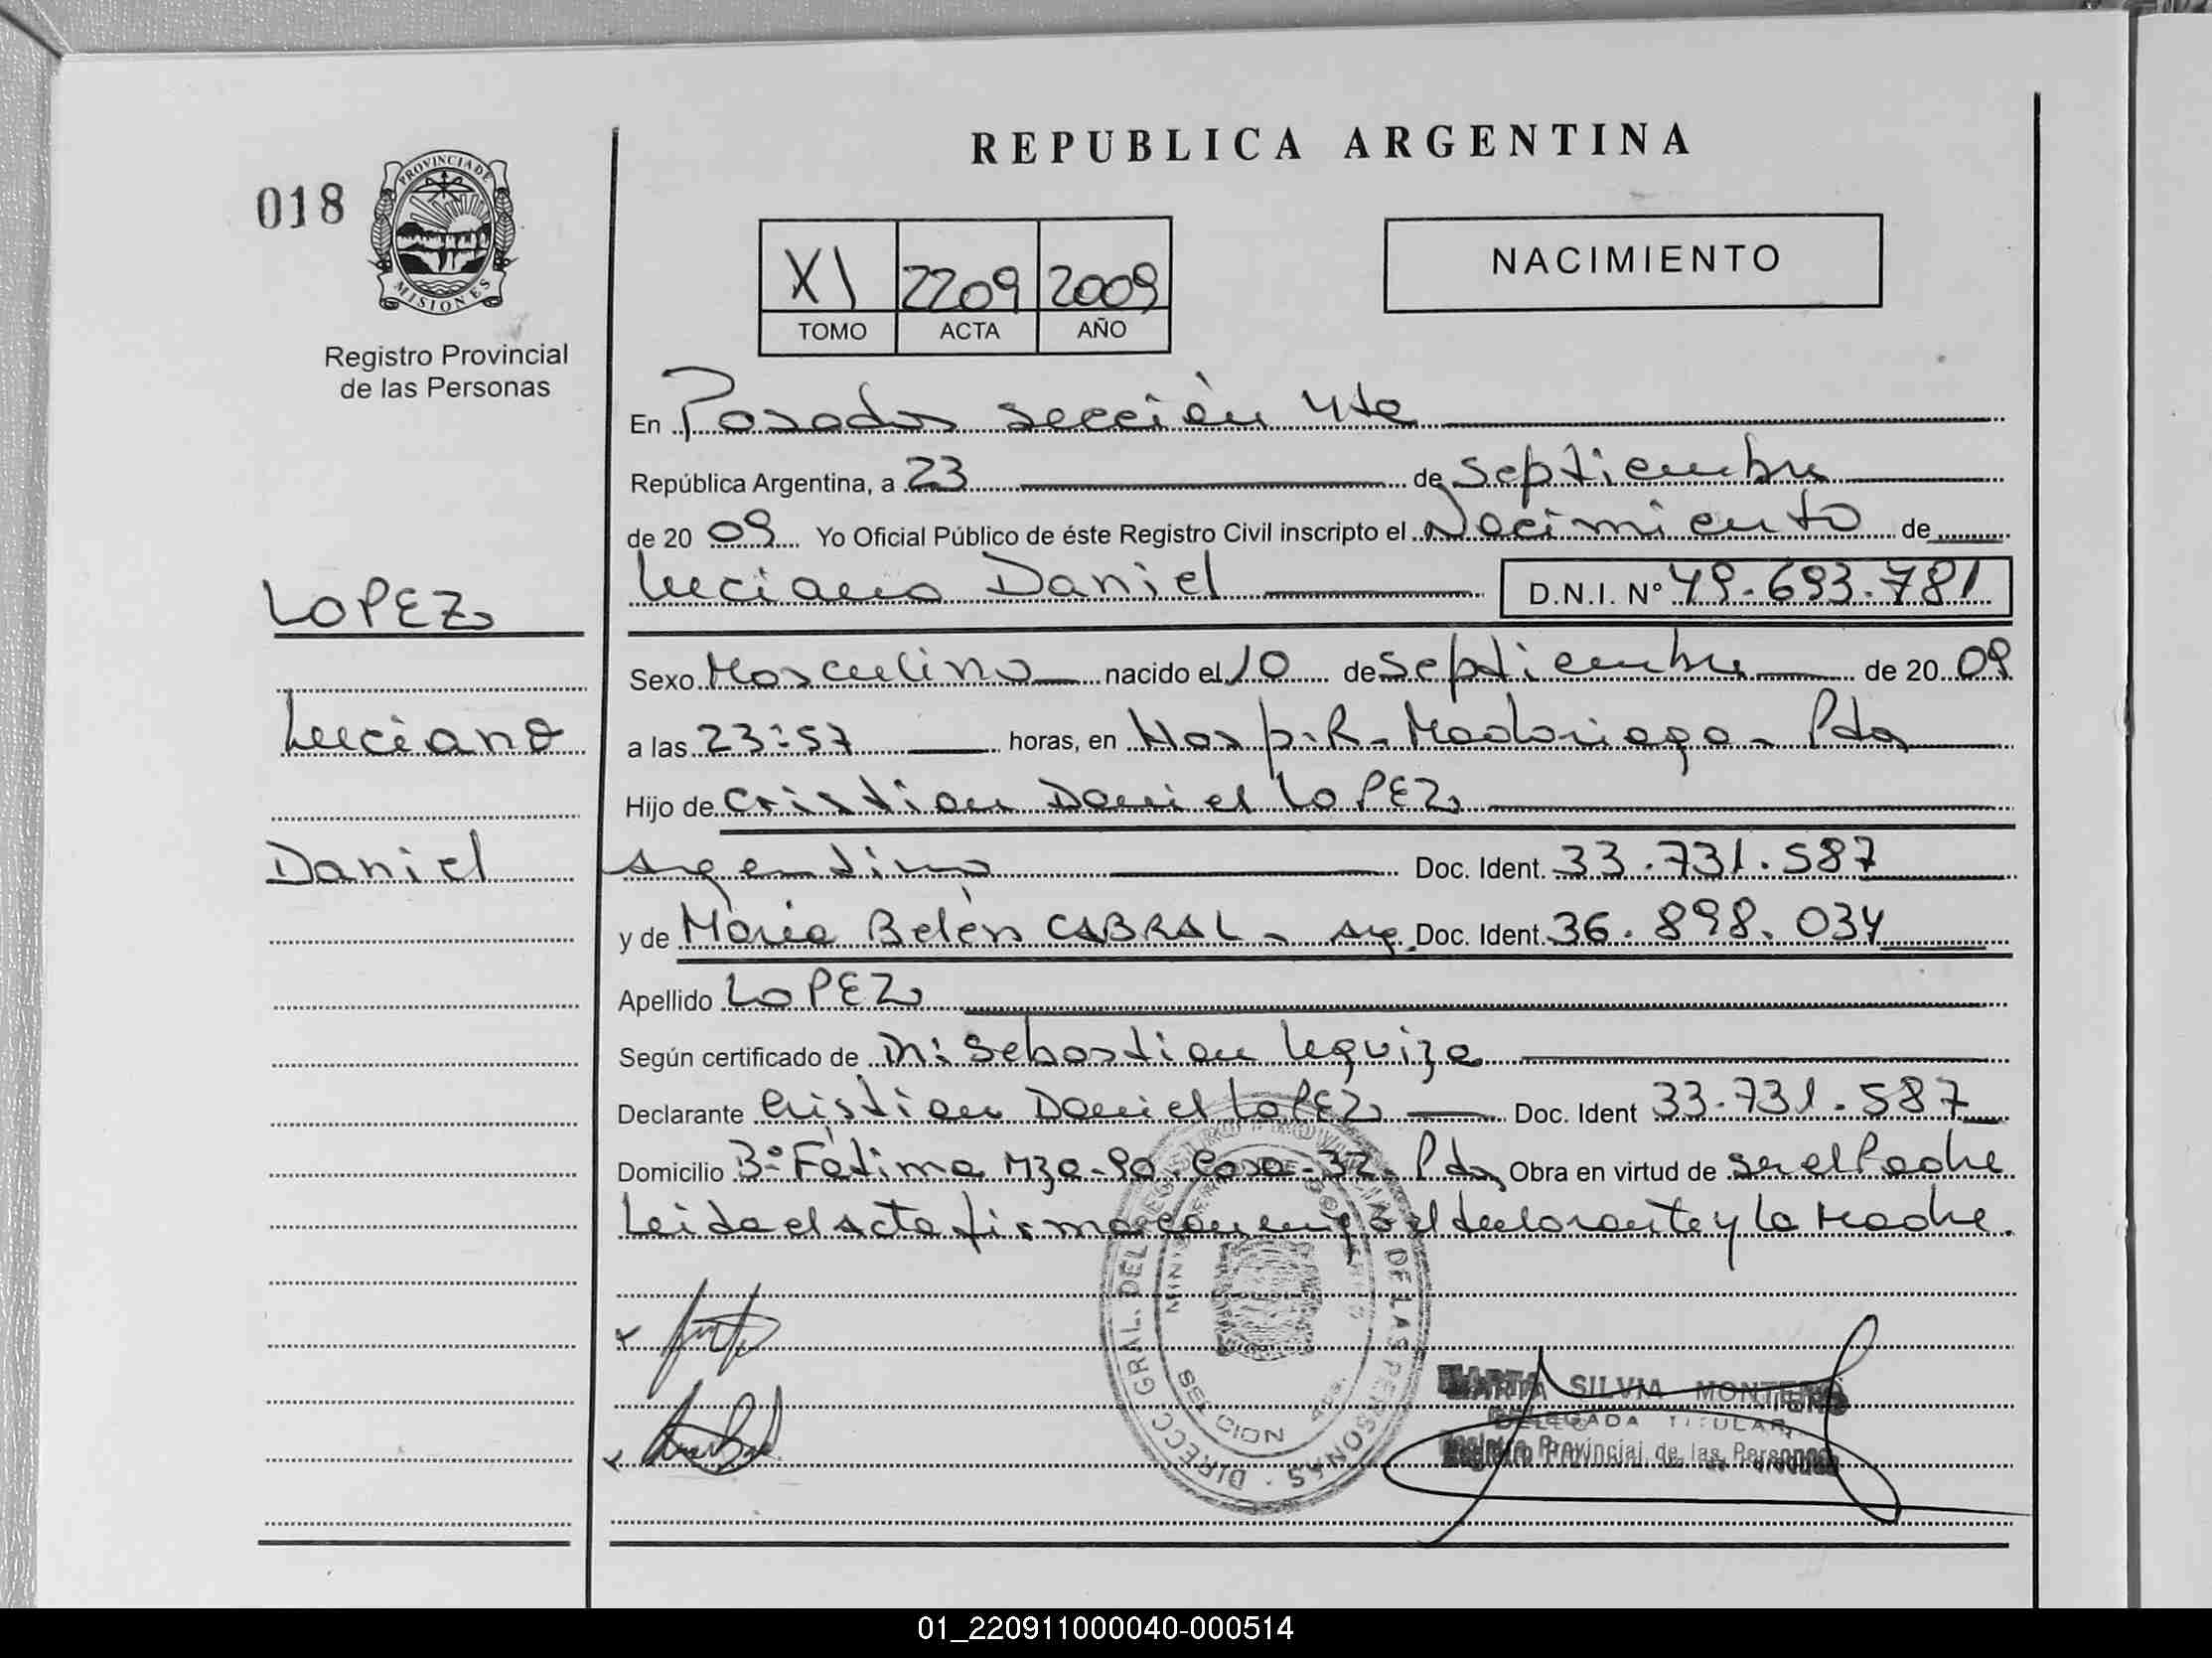 REPUBLICA ARGENTINA
018
PROVINCIA DE
MISIONES
Registro Provincial
de las Personas
NACIMIENTO
XI 2209 2009
TOMO ACTA AÑO
En Posadas sección 4ta
República Argentina, a 23 de septiembre
de 20 09 Yo Oficial Público de éste Registro Civil inscripto el Nacimiento de
LOPEZ
Luciano Daniel D.N.I. Nº 49.693.781
Sexo Masculino nacido el 10 de septiembre de 20 09
Luciano
a las 23:57 horas, en Hosp. R. Madariaga - Pdas
Hijo de Cristian Daniel LOPEZ
Daniel
Argentino Doc. Ident. 33.731.587
y de María Belén CABRAL - Arg. Doc. Ident. 36.898.034
Apellido LOPEZ
Según certificado de Sebastian
Declarante Cristian Daniel LOPEZ Doc. Ident 33.731.587
Domicilio Bº Fátima Mza-90. Casa-32- Pdas Obra en virtud de ser el Padre
Leida el Acta firma con el declarante y la Madre.
DIRECC GRAL. DEL REGISTRO PROVINCIAL DE LAS PERSONAS
SECCION 4ta.
MARTA SILVIA MONTERO
DELEGADA TITULAR
Registro Provincial de las Personas
01_220911000040-000514